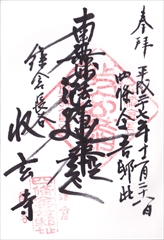 奉拝
平成二十七年十一月二十八日
四條金吾邸址
南無妙法蓮華経
鎌倉長谷
収玄寺